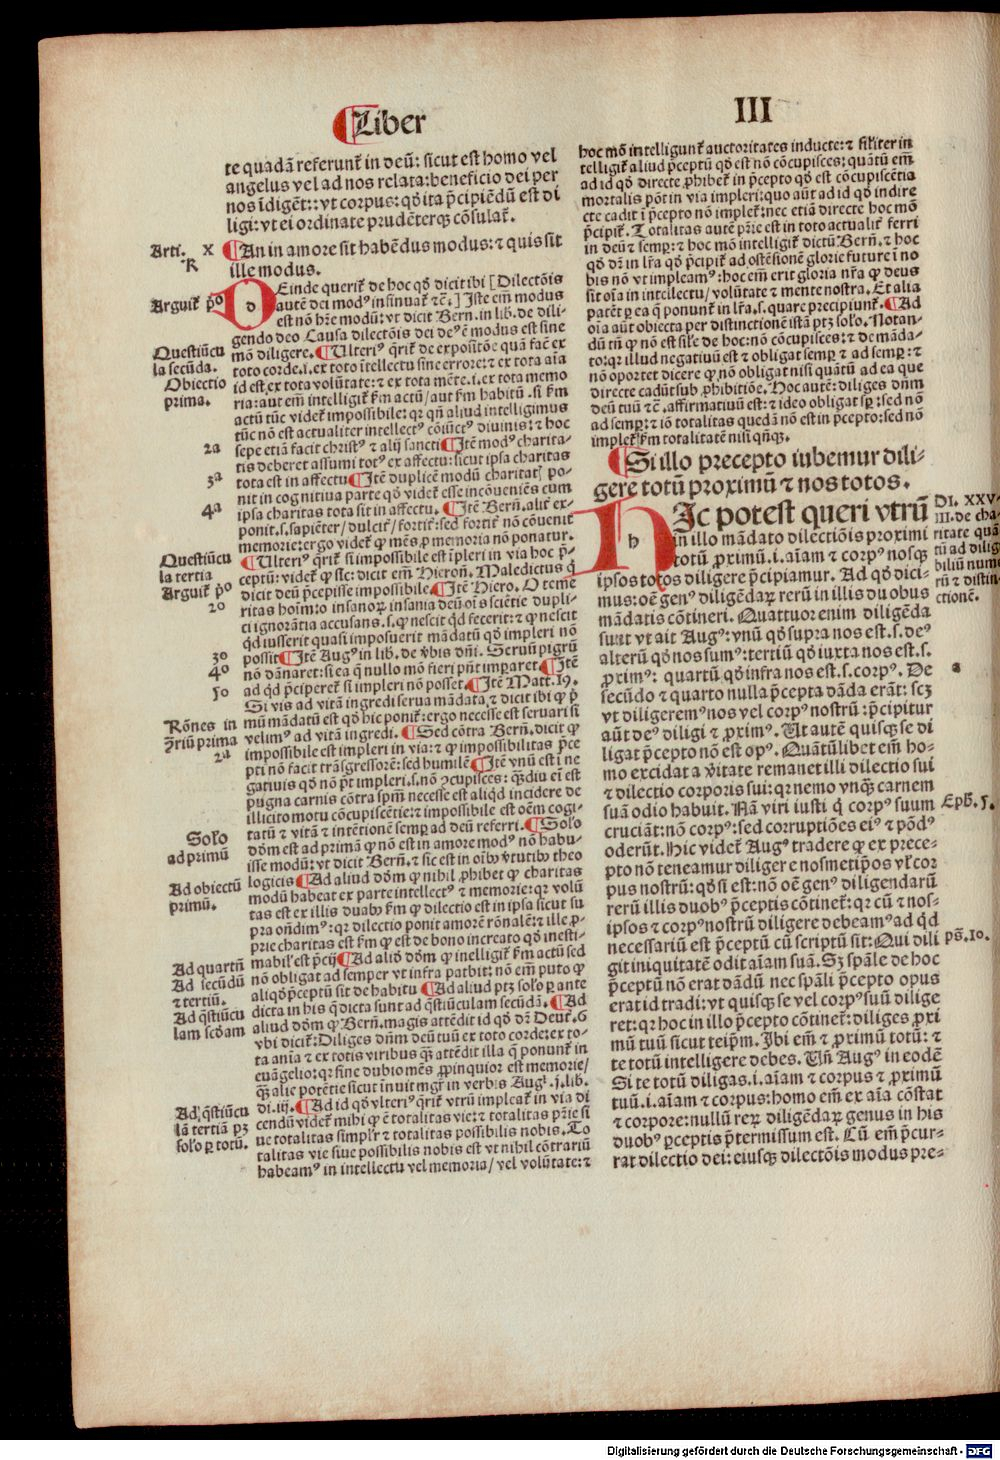 Liber
III
te quadā referunt᷒ in deū: sicut est homo vel
angelus vel ad nos relata: beneficio dei per
nos īdigēt:: vt corpus: qð ita p̄cipiēdū est di
ligi: vt ei ordinate prudēterq₃ cōsulat᷒.
Arti. X
¶ An in amore sit habēdus modus: ⁊ quis sit
ille modus.
Arguit᷒ pº
DEinde querit᷒ de hoc qð dicit ibi [Dilectōis
autē dei modꝰ insinuat᷒ ⁊c̄.] Iste em̄ modus
est nō hr̄e modū: vt dicit Bern. in lib. de dili-
gendo deo Causa dilectōis dei deꝰ ē modus est sine
Questiūcu
la secūda.
mō diligere. ¶ Vlteriꝰ q̄rit᷒ de expositōe quā fac̄ ex
toto corde.i. ex toto ītellectu sine errore: ⁊ ex tota aīa
Obiectio
prima.
id est, ex tota volūtate: ⁊ ex tota mēte.i. ex tota memo
ria: aut em̄ intelligit᷒ ẜm actū/ aut ẜm habitū. si ẜm
actū tūc videt᷒ impossibile: qꝛ qn̄ aliud intelligimus
tūc nō est actualiter intellectꝰ cōiūctꝰ diuinis: ⁊ hoc
2a
sepe etiā facit christꝰ ⁊ alij sancti ¶ Itē modꝰ charita-
tis deberet assumi totꝰ ex affectu: sicut ipsa charitas
3a
tota est in affectu ¶ Itē duplicē modū charitat᷒ po-
nit in cognitiua parte qð videt᷒ esse incōueniēs cum
4a
ipsa charitas tota sit in affectu. ¶ Itē Bern̄. alit᷒ ex-
ponit.s. sapiēter/ dulcit᷒/ fortit᷒: sed fortit᷒ nō cōuenit
memorie: ergo videt᷒ ꝙ mēs ꝓ memoria nō ponatur.
Questiūcu
la tertia
¶ Vlteriꝰ q̄rit᷒ si impossibile est īpleri in via hoc p̄-
ceptū: videt᷒ ꝙ sic: dicit em̄ Hieron̄. Maledictus q̇
Arguit᷒ pº
dicit deū p̄cepisse impossibile. ¶ Itē Hiero. O teme
2º
ritas hoīm: o insanoꝝ insania deū oīs sciētie dupli-
ci ignorātia accusans.s. ꝙ nescit qd fecerit: ⁊ ꝙ nescit
qd iusserit quasi imposuerit mādatū qð impleri nō
3º
possit ¶ Itē Augꝰ in lib. de v̄bis dn̄i. Seruū pigrū
4º
nō dānaret: si ea q̄ nullo mō fieri pn̄t imꝑaret. ¶ Itē
5º
ad qd p̄ciperet᷒ si impleri nō posset. ¶ Itē Matt.19.
Si vis ad vitā ingredi serua mādata, ⁊ dicit ibi ꝙ p̄
mū mādatū est qð hic ponit᷒: ergo necesse est seruari si
Rōnes in
ꝯ̄riū prima
velimꝰ ad vitā ingredi. ¶ Sed cōtra Bern̄. dicit ꝙ
impossibile est impleri in via: ⁊ ꝙ impossibilitas p̄ce
2a
pti nō facit trāsgressorē: sed humilē ¶ Itē vnū est ī ne
gatiuis qð nō pt̄ impleri.s. nō ꝯcupisces: q̄diu ei᷒ est
pugna carnis cōtra spm̄ necesse est aliqd incidere de
illicito motu cōcupiscētie: ⁊ impossibile est oēm cogi-
Solº
ad primū
tatū ⁊ vitā ⁊ intētionē semꝑ ad deū referri. ¶ Solº
dōm est ad primā ꝙ nō est in amore modꝰ nō habu-
isse modū: vt dicit Bern̄. ⁊ sic est in oīb᷒ v̄tutib᷒ theo
Ad obiectū
primū.
logicis ¶ Ad aliud dōm ꝙ nihil ꝓhibet ꝙ charitas
modū habeat ex parte intellectꝰ ⁊ memorie: qꝛ volū
tas est ex illis duab᷒ ẜm ꝙ dilectio est in ipsa sicut su
pra on̄dimꝰ: qꝛ dilectio ponit amorē rōnalē: ⁊ ille ꝓ-
prie charitas est ẜm ꝙ est de bono increato qð inesti-
Ad quartū
Ad secūdū
⁊ tertiū.
mabilꝰ est p̄cij ¶ Ad aliō dōm ꝙ inelligit᷒ ẜm actū sed
nō obligat ad semper vt infra patbit: nō em̄ puto ꝙ
aliqð p̄ceptū sit de habitu ¶ Ad aliud ptꝫ solº ꝑ ante
Ad q̄stiūcu
lam scdam
dicta in his q̄ dicta sunt ad q̄stiūculam secūdā. ¶ Ad
aliud dōm ꝙ Bern̄. magis attēdit id qð dr̄ Deut᷒.6
vbi dicit᷒: Diliges dn̄m deū tuū ex toto corde: ex to-
ta anīa ⁊ ex totis viribus q̄₃ attēdit illa q̄ ponunt᷒ in
euāgelio: qꝛ sine dubio mēs ꝓpinquior est memorie/
q̄₃ alie potētie sicut īnuit mgr̄ in verbis Augꝰ.j. lib.
Ad, q̄stiūcu
lā tertiā pꝫ
solº ꝑ totū.
di.iij. ¶ Ad id qð vlteriꝰ q̄rit᷒ vtrū impleat᷒ in via di
cendū videt᷒ mihi ꝙ ē totalitas vie: ⁊ totalitas pr̄ie si
ue totalitas simplr̄ ⁊ totalitas possibilis nobis. To
talitas vie siue possibilis nobis est vt nihil cōtrariū
habeamꝰ in intellectu vel memoria/ vel volūtate: ⁊
hoc mō intelligunt᷒ auctoritates inducte: ⁊ siliter in
telligit᷒ aliud p̄ceptū qð est nō cōcupisces: quātū em̄
ad id qð directe ꝓhibet᷒ in p̄cepto qð est cōcupiscētia
mortalis pōt in via impleri: quo aūt ad id qð indire
cte cadit ī p̄cepto nō implet᷒: nec etiā directe hoc mō
p̄cipit᷒. Totalitas autē pr̄ie est in toto actualit᷒ ferri
in deū ⁊ semꝑ: ⁊ hoc mō intelligit᷒ dictū Bern̄. ⁊ hoc
qð dr̄ in lr̄a qð p̄cipit᷒ ad ostēsionē glorie future ī no
bis nō vt impleamꝰ: hoc em̄ erit gloria nr̄a ꝙ deus
sit oīa in intellectu/ volūtate ⁊ mente nostra. Et alia
patēt ꝑ ea q̄ ponunt᷒ in lr̄a.s. quare precipiunt᷒. ¶ Ad
oīa aūt obiecta per distinctionē istā ptꝫ solº. Notan-
dū tn̄ ꝙ nō est sil̄e de hoc: nō cōcupisces: ⁊ de māda-
to: qꝛ illud negatiuū est ⁊ obligat semꝑ ⁊ ad semꝑ: ⁊
nō oportet dicere ꝙ nō obligat nisi quātū ad ea que
directe cadūt sub ꝓhibitiōe. Hoc autē: diliges dn̄m
deū tuū ⁊c̄. affirmatiuū est: ⁊ ideo obligat sꝑ: sed nō
ad semꝑ: ⁊ iō totalitas quedā nō est in p̄cepto: sed nō
implet᷒ ẜm totalitatē nisi qn̄q₃.
¶ Si illo precepto iubemur dili-
gere totū proximū ⁊ nos totos.
HIc potest queri vtrū
in illo mādato dilectiōis proximi
totū ꝓximū.i. aīam ⁊ corpꝰ nosq₃
ipsos totos diligere p̄cipiamur. Ad qð dici-
mus: oē genꝰ diligēdaꝝ rerū in illis duobus
mādatis cōtineri. Quattuor enim diligēda
sunt vt ait Augꝰ: vnū qð supra nos est.s. deꝰ
alterū qð nos sumꝰ: tertiū qð iuxta nos est.s.
ꝓximꝰ: quartū qð infra nos est.s. corpꝰ. De
secūdo ⁊ quarto nulla p̄cepta dāda erāt: scꝫ
vt diligeremꝰ nos vel corpꝰ nostrū: p̄cipitur
aūt deꝰ diligi ⁊ ꝓximꝰ. Ut autē quisq₃ se di
ligat p̄cepto nō est opꝰ. Quātūlibet em̄ ho-
mo excidat a v̄itate remanet illi dilectio sui
⁊ dilectio corporis sui: qꝛ nemo vnq̄₃ carnem
suā odio habuit. Nā viri iusti q̇ corpꝰ suum
cruciāt: nō corpꝰ: sed corruptiōes eiꝰ ⁊ pōdꝰ
oderūt. Hic videt᷒ Augꝰ tradere ꝙ ex prece-
pto nō teneamur diligere nosmetip̄os vl̕ cor
pus nostrū: qð si est: nō oē genꝰ diligendarū
rerū illis duobꝰ p̄ceptis cōtinet᷒: qꝛ cū ⁊ nos-
ipsos ⁊ corpꝰ nostrū diligere debeamꝰ ad qd
necessariū est p̄ceptū cū scriptū sit: Qui dili
git iniquitatē odit aīam suā. Sꝫ spāle de hoc
p̄ceptū nō erat dādū nec spāli p̄cepto opus
erat id tradi: vt quisq₃ se vel corpꝰ suū dilige
ret: qꝛ hoc in illo p̄cepto cōtinet᷒: diliges ꝓxi
mū tuū sicut teipm̄. Ibi em̄ ⁊ ꝓximū totū: ⁊
te totū intelligere debes. Un̄ Augꝰ in eodē
Si te totū diligas.i. aīam ⁊ corpus ⁊ ꝓximū
tuū.i. aīam ⁊ corpus: homo em̄ ex aīa cōstat
⁊ corpore: nullū reꝝ diligēdaꝝ genus in his
duobꝰ p̄ceptis p̄termissum est. Cū em̄ p̄cur-
rat dilectio dei: eiusq₃ dilectōis modus pre-
DI. XXV-
III. de cha
ritate quā
tū ad dilig
biliū nume
rū ⁊ distin-
ctionē.
Eph̄. 5.
ps̄. 10.
Digitalisierung gefördert durch die Deutsche Forschungsgemeinschaft - DFG